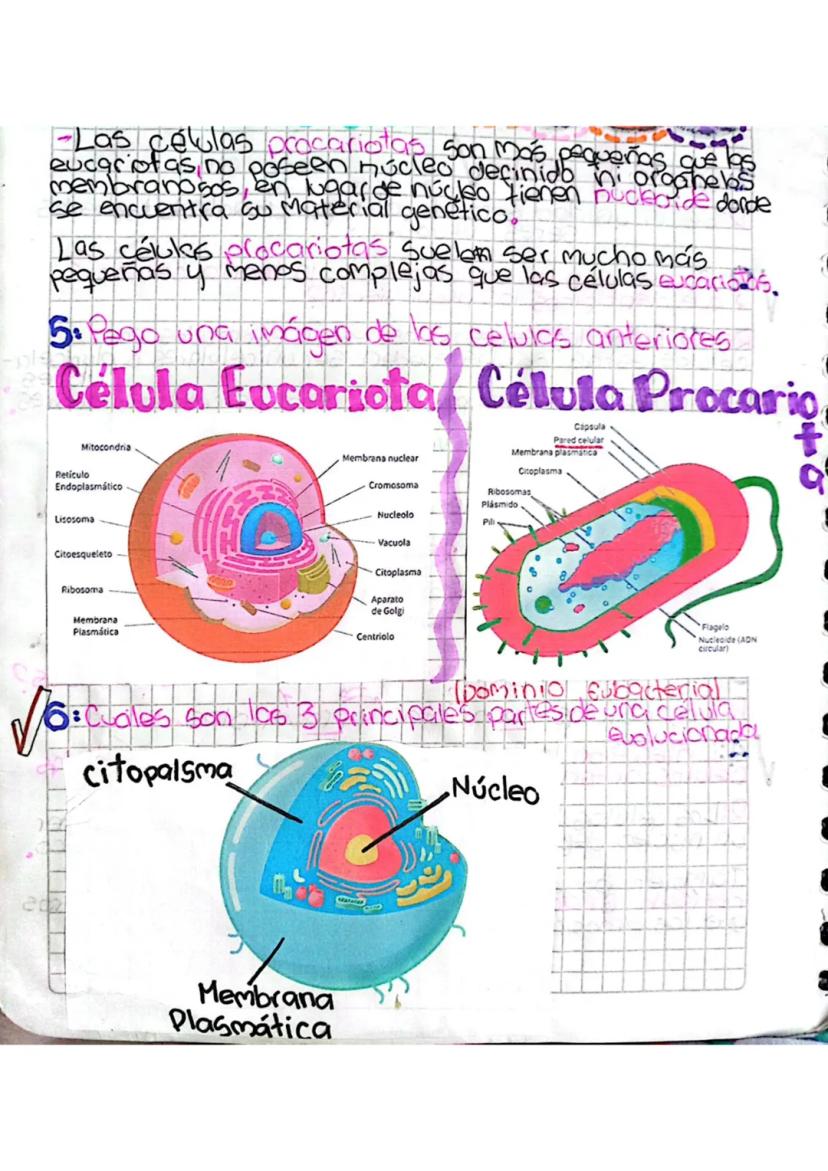 -Las células procariotas son más pequeñas que las
eucariotas, no poseen núcleo decinido ni organelos
membranosos, en lugar de núcleo tienen nucleoide donde
se encuentra su material genético.
Las células procariotas suelen ser mucho más
pequeñas y menos complejas que las células eucariotas.
5: Pego una imágen de las celulas anteriores
Célula Eucariota
Mitocondria
Retículo
Endoplasmático
Lisosoma
Citoesqueleto
Ribosoma
Membrana
Plasmática
Membrana nuclear
Cromosoma
Nucleolo
Vacuola
Citoplasma
Aparato
de Golgi
Centriolo
Célula Procariota
Cápsula
Pared celular
Membrana plasmática
Citoplasma
Ribosomas
Plásmido
Pili
Flagelo
Nucleoide (ADN
circular)
(Dominio Eubacterial
6: Cuales son las 3 principales partes de una celula
evolucionada
citopalsma
Núcleo
Membrana
Plasmática